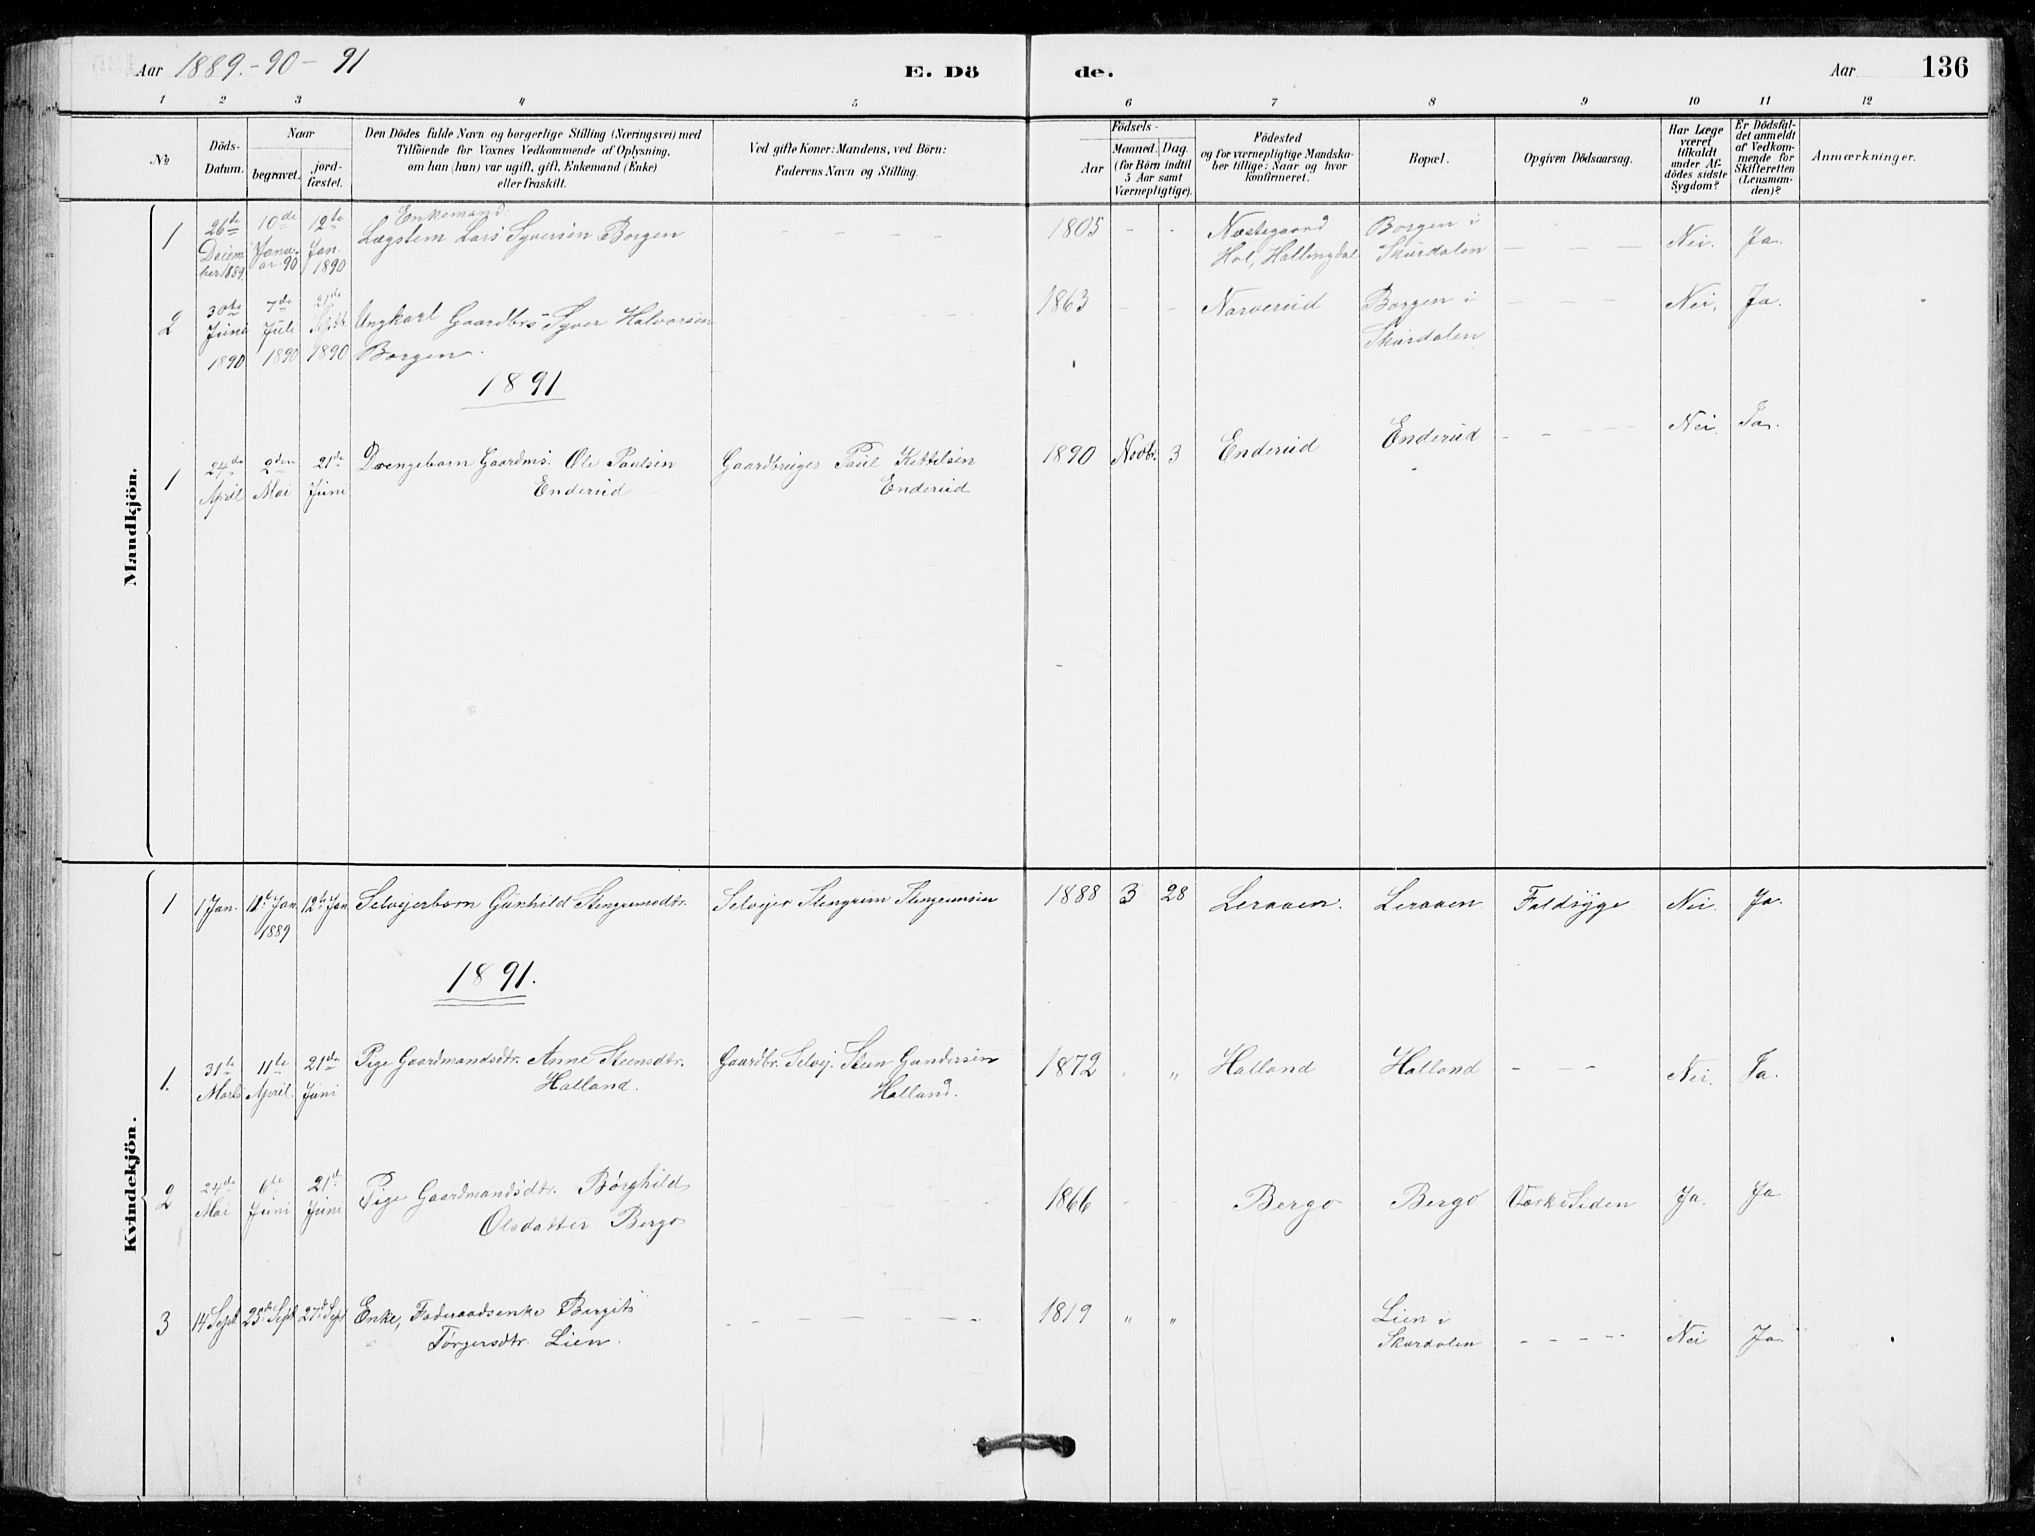 Aar 1889.-90-91
E. Dö
de.
Aar
136
1 2 3 4 5 6 7 8 9 10 11 12
No
Döds-
Datum.
Naar
begravet.
jord-
fæstet.
Den Dödes fulde Navn og borgerlige Stilling (Næringsvei) med
Tilföiende for Voxnes Vedkommende af Oplysning,
om han (hun) var ugift, gift, Enkemand (Enke)
eller fraskilt.
Ved gifte Koner: Mandens, ved Börn:
Faderens Navn og Stilling.
Födsels-
Aar
Maaned. Dag.
(for Börn indtil
5 Aar samt
Værnepligtige).
Födested
og for værnepligtige Mandska-
ber tillige: Naar og hvor
konfirmeret.
Bopæl.
Opgiven Dödsaarsag.
Har Læge
været
tilkaldt
under Af-
dödes sidste
Sygdom?
Er Dödsfal-
det anmeldt
af Vedkom-
mende for
Skifteretten
(Lensman-
den)?
Anmærkninger.
Mandkjön.
1
26de
Decem
ber 1889
10de
Janu-
ar 90
12te
Jan.
1890
Enkemand.
Lægstem Lars Syversen Borgen
- - - -
1805 - -
Næstegaard
Hol, Hallingdal
Borgen i
Skurdalen
- - -
Nei. Ja.
2
30de
Juni
1890
7de
Juli
1890
21de
Septbr
1890
Ungkarl Gaardbrs- Syver Halvorsen
Borgen.
1863 - -
Narverud
Borgen i
Skurdalen
- - -
Nei, Ja.
1891
1
24de
April
2den
Mai
21de
Juni
Drengebarn Gaardms. Ole Paulsen
Enderud
Gaardbruger Paul Kittilsen
Enderud
1890 Novbr. 3
Enderud
Enderud
- - - -
Nei. Ja.
Kvindekjön.
1
1 Jan.
11te Jan
1889
12te Jan
Selveierbarn Gunhild Stengrimsdtr.
Selveier Stengrim Stengrimsen
1888 3 28
Leraaen.
Leraaen
Faldsyge
Nei. Ja.
1891.
1.
31te
Marts
11te
April.
21de
Juni
Pige Gaardmandsdtr. Anne Steensdtr.
Halland.
Gaardbr. Selvej. Steen Gundersen
Halland.
1872 . „
Halland
Halland
- - -
Nei. Ja.
2
24de
Mai
6te
Juni
21de
Juni
Pige Gaardmandsdtr. Børghild
Olsdatter Bergo
1866 - -
Bergo
Bergo
Værk i Siden
Ja. Ja
3
14 Sept
23de Sept
27de Sept
Enke, Føderaadsenke Bergit
Tørgersdtr. Lien.
- - - - - -
1819 „ „
Lien i
Skurdalen
- - - -
Nei Ja.